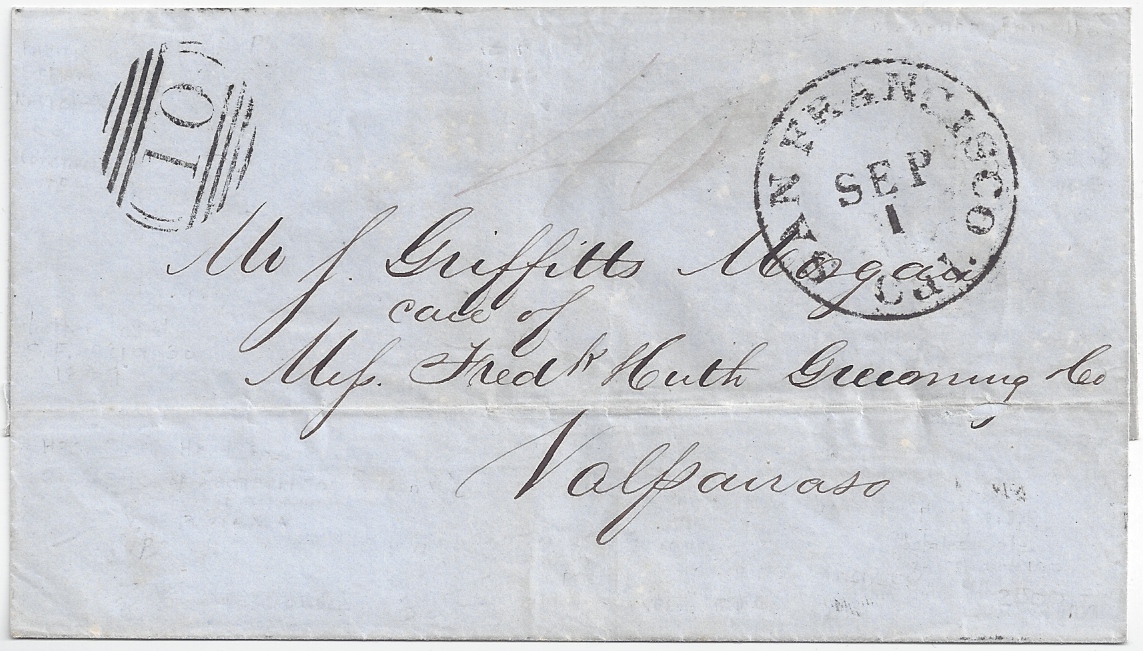 10
SAN FRANCISCO CAL.
SEP
1
Mr J. Griffitts Morgan
care of
Mess. Fredk Huth Greuning Co
Valparaiso